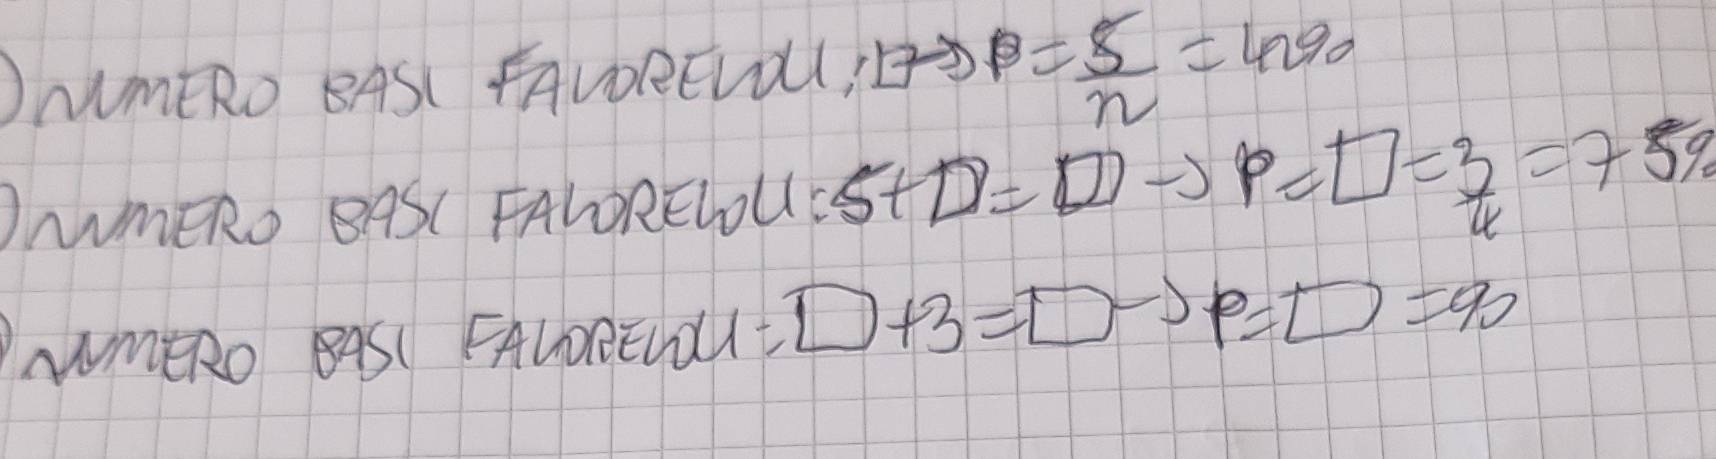 ) NUMERO CASI FAVOREVOLI: □ → p = 5/n = 42%
) NUMERO CASI FAVOREVOLI: 5 + □ = □ → p = □ = 3/4 = 75%
) NUMERO CASI FAVOREVOLI: □ + 3 = □ → p = □ =